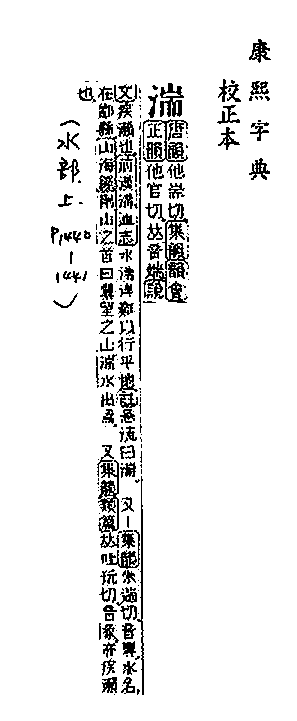 康熙字典
校正本
湍
唐韻他耑切集韻韻會
正韻他官切𠀤音煓說
文疾瀨也前漢溝洫志水湍悍難以行平地註急流曰湍 又集韻朱遄切音專水名
在鄀縣山海經獸山之首曰景望之山湍水出焉 又集韻類篇𠀤吐玩切音彖亦疾瀨
也
(水部上 P.1440-1441)